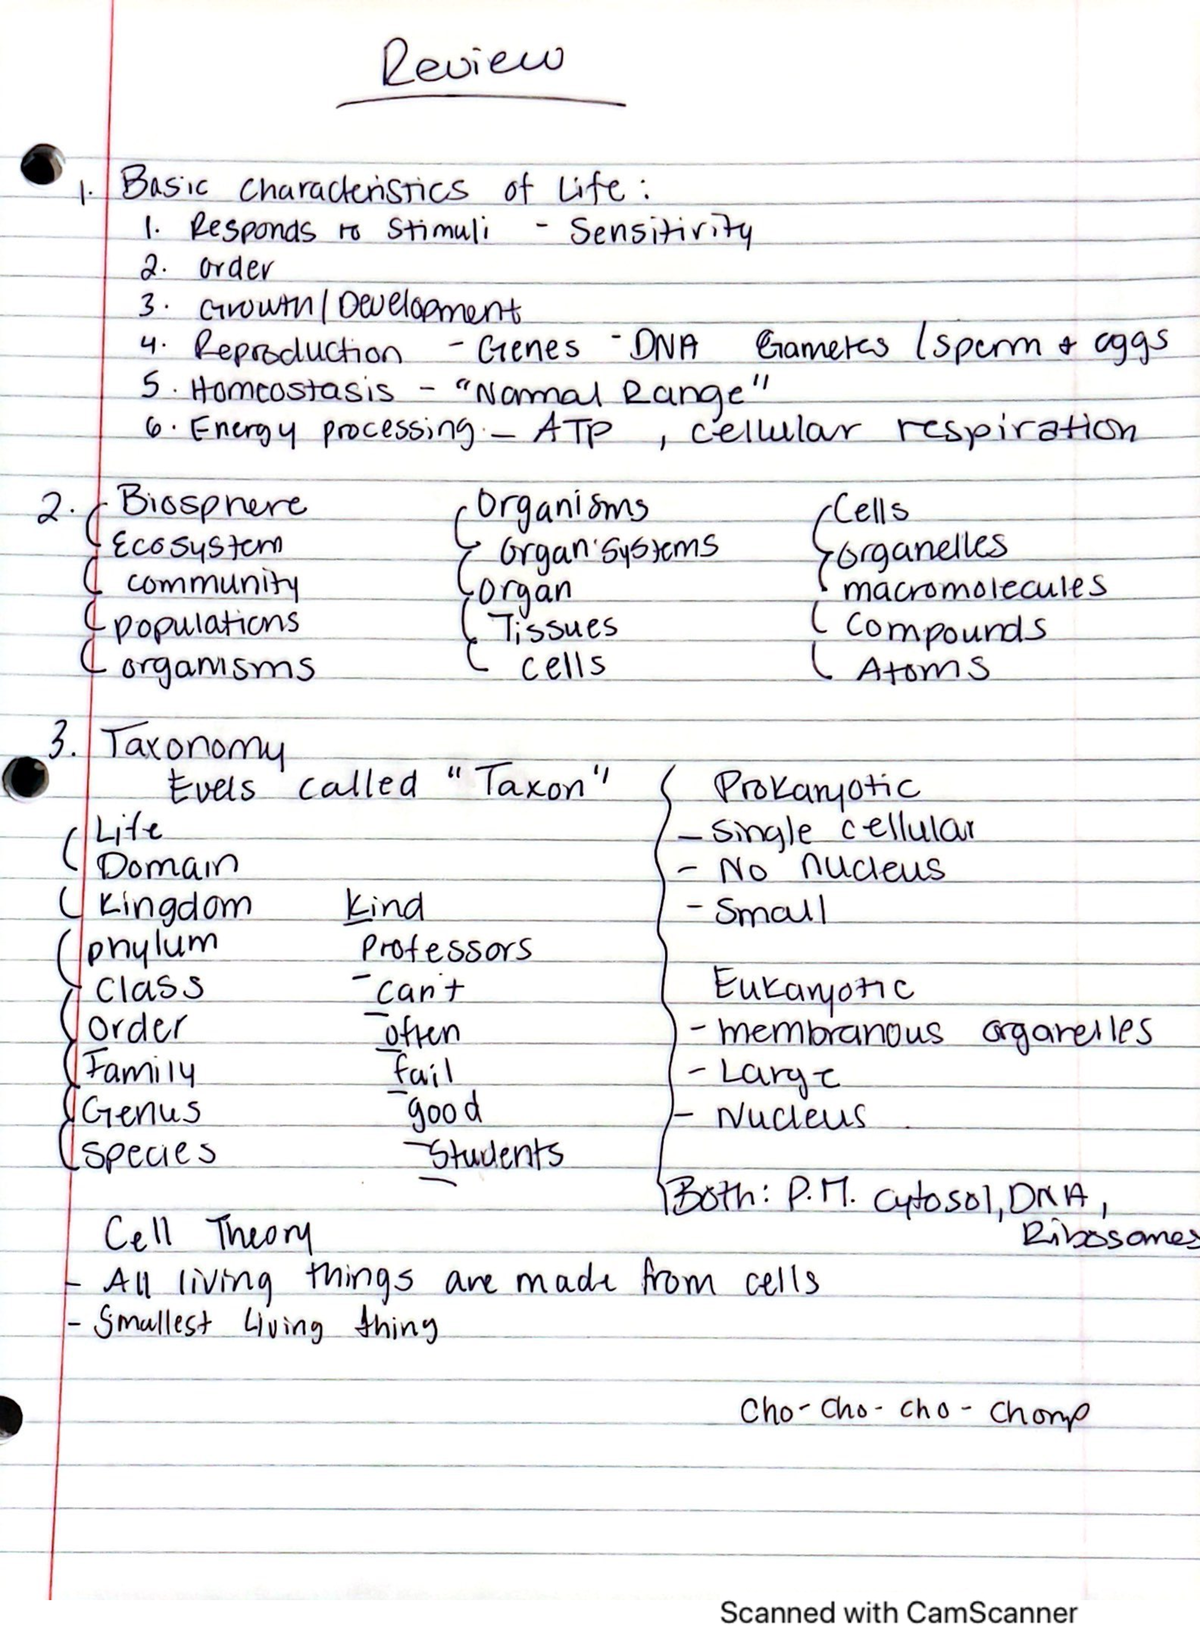 Review
1. Basic Characteristics of Life:
1. Responds to Stimuli - Sensitivity
2. Order
3. Growth/Development
4. Reproduction - Genes - DNA Gametes (sperm + eggs
5. Homeostasis - "Normal Range"
6. Energy processing - ATP, cellular respiration
2. Biosphere
Ecosystem
community
populations
organisms
Organisms
Organ Systems
Organ
Tissues
cells
Cells
Organelles
macromolecules
Compounds
Atoms
3. Taxonomy
Levels called "Taxon"
Life
Domain
Kingdom
phylum
Class
Order
Family
Genus
Species
Kind
Professors
can't
often
fail
good
Students
Prokaryotic
- Single cellular
- No nucleus
- Small
Eukaryotic
- membranous organelles
- Large
- Nucleus
Both: P.M. cytosol, DNA,
Ribosomes
Cell Theory
- All living things are made from cells
- Smallest Living thing
Cho-Cho-Cho-Chomp
Scanned with CamScanner